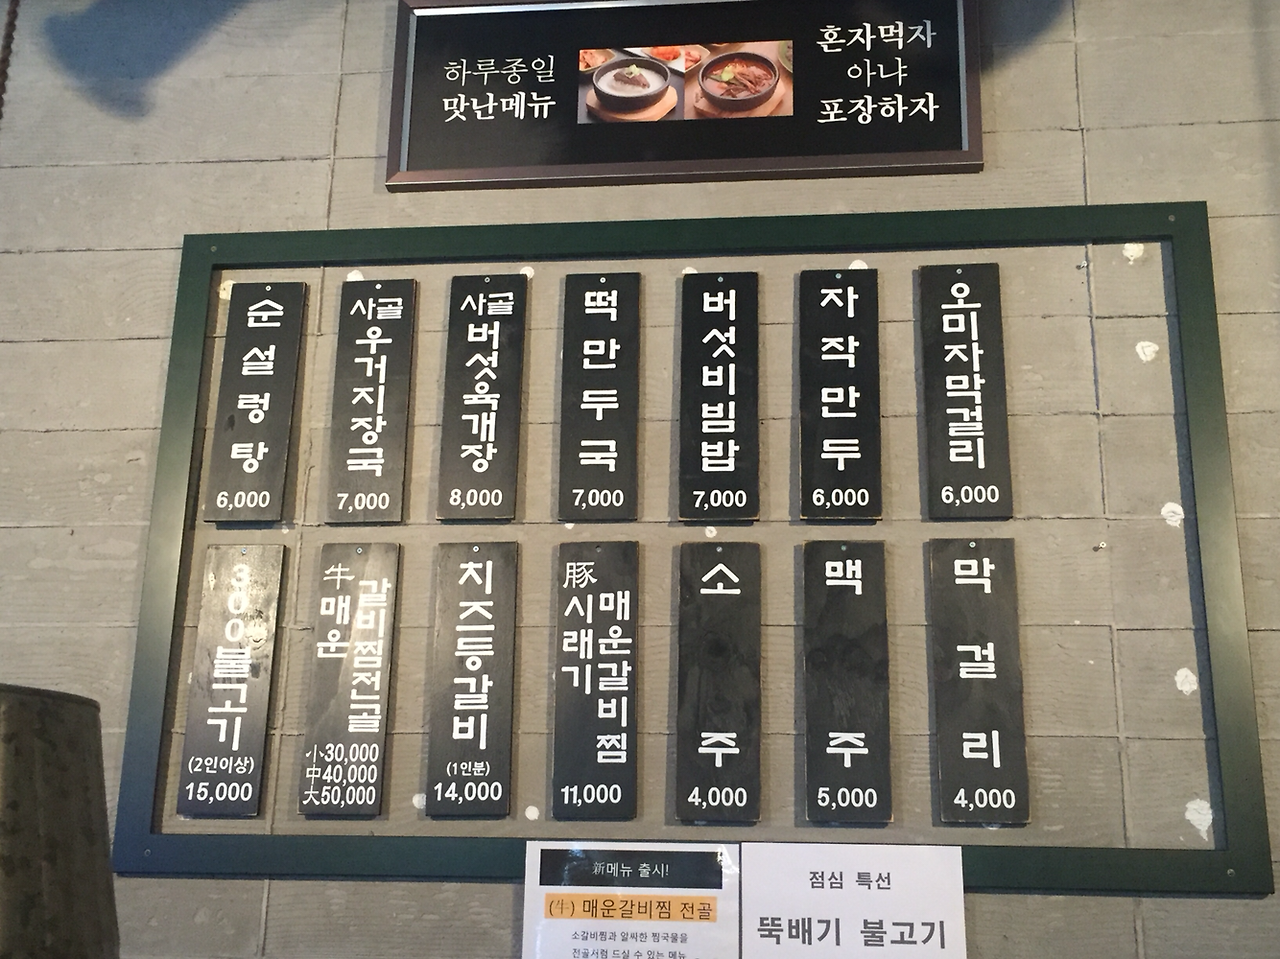 하루종일
맛난메뉴
혼자먹자
아냐
포장하자
순설렁탕
6,000
사골
우거지장국
7,000
사골
버섯육개장
8,000
떡만두국
7,000
버섯비빔밥
7,000
자작만두
6,000
오미자막걸리
6,000
300불고기
(2인이상)
15,000
牛매운
갈비찜전골
小30,000
中40,000
大50,000
치즈등갈비
(1인분)
14,000
豚시래기
매운갈비찜
11,000
소주
4,000
맥주
5,000
막걸리
4,000
新메뉴 출시!
(牛) 매운갈비찜 전골
소갈비찜과 알싸한 찜국물을
전골처럼 드실 수 있는 메뉴
점심 특선
뚝배기 불고기